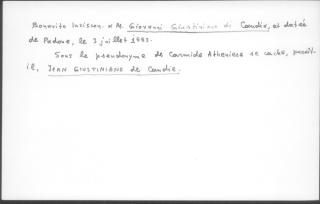 Bonavito Incisson. a M. Giovanni Giustiniano di Candia, et datée
de Padoue, le 3 juillet 1553.
Sous le pseudonyme de Carmide Atheniese se cache, paraît-
il, JEAN GIUSTINIANO de Candie.